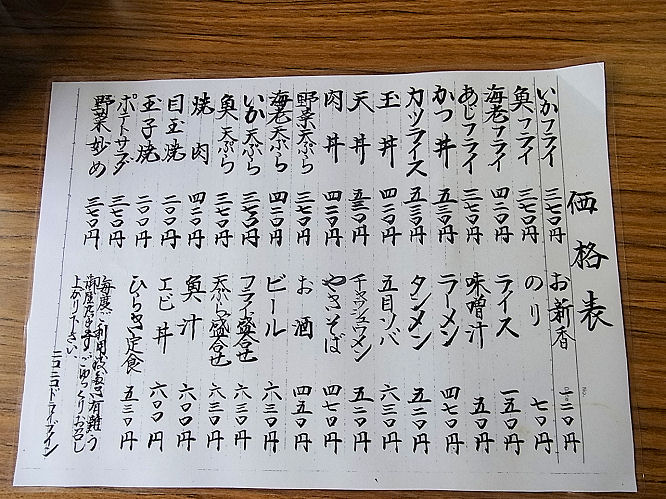 価格表
いかフライ 三七〇円
魚フライ 三七〇円
海老フライ 四二〇円
あじフライ 三七〇円
かつ丼 五五〇円
カツライス 五三〇円
玉丼 四二〇円
天丼 五三〇円
肉丼 四二〇円
野菜天ぷら 三七〇円
海老天ぷら 四二〇円
いか天ぷら 三七〇円
魚天ぷら 三七〇円
焼肉 四二〇円
目玉焼 二〇〇円
玉子焼 二〇〇円
ポテトサラダ 三七〇円
野菜炒め 三七〇円
お新香 一二〇円
のり 七〇円
ライス 一五〇円
味噌汁 五〇円
ラーメン 四七〇円
タンメン 五二〇円
五目ソバ 六三〇円
チャシュウメン 五二〇円
やきそば 四七〇円
お酒 四五〇円
ビール 六三〇円
フライ盛合せ 六三〇円
天ぷら盛合せ 六三〇円
魚汁 六〇〇円
エビ丼 六〇〇円
ひらき定食 五三〇円
毎度ご利用頂き有難う
御座居ますごゆっくりお召し
上がり下さい
ニコニコドライブイン